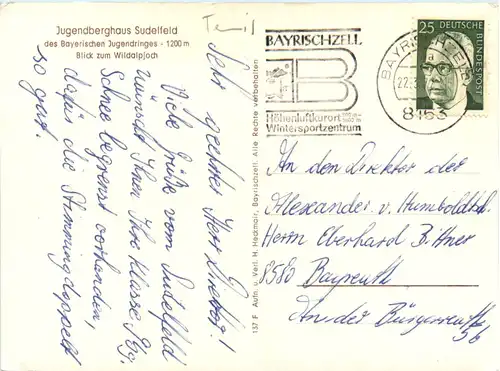 Jugendberghaus Sudelfeld
des Bayerischen Jugendringes - 1200 m
Blick zum Wildalpjoch
Sehr geehrter Herr Direktor!
Viele Grüße vom Sudelfeld
wünscht Ihnen Ihre Klasse
Schnee begrenzt vorhanden,
dafür die Stimmung doppelt
so gut!
137 F Aufn. u. Verl. H. Hackmair, Bayrischzell. Alle Rechte vorbehalten
BAYRISCHZELL
B
Höhenluftkurort
Wintersportzentrum
BAYRISCHZELL
22.
8163
25
DEUTSCHE
BUNDESPOST
An den Direktor des
Alexander v. Humboldt
Herrn Eberhard Bittner
8580 Bayreuth
An der Bürgerreuth